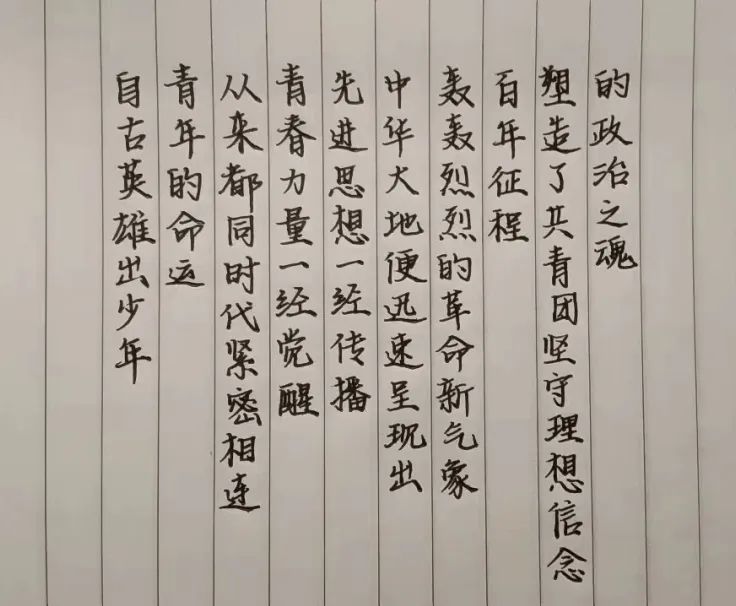 自古英雄出少年
青年的命运
从来都同时代紧密相连
青春力量一经觉醒
先进思想一经传播
中华大地便迅速呈现出
轰轰烈烈的革命新气象
百年征程
塑造了共青团坚守理想信念
的政治之魂